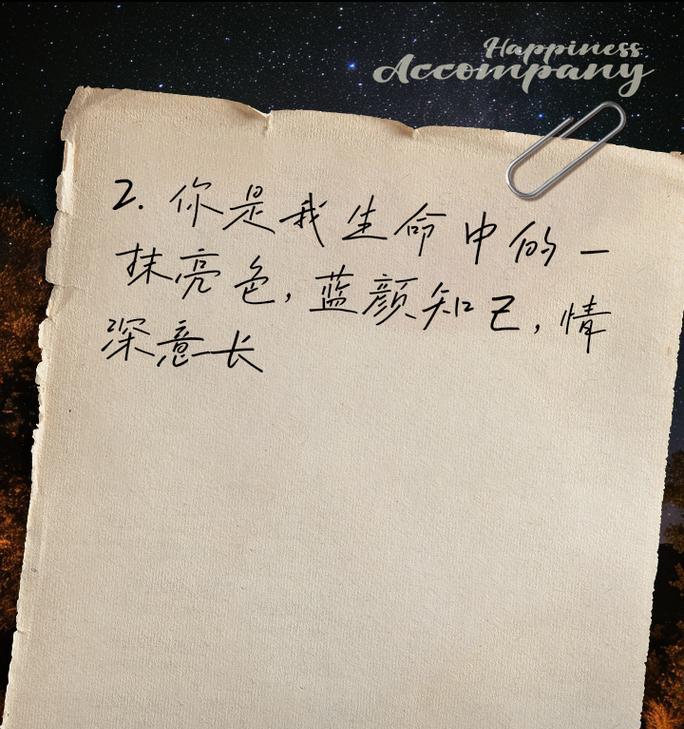 Happiness
Accompany
2. 你是我生命中的一
抹亮色，蓝颜知己，情
深意长